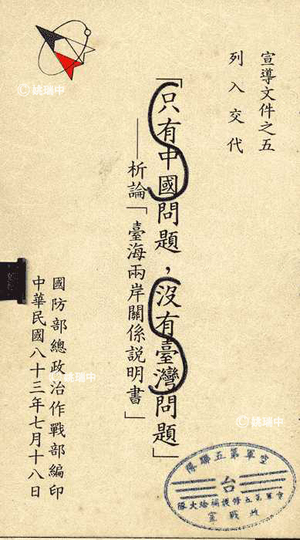 宣導文件之五
列入交代
「只有中國問題，沒有臺灣問題」
——析論「臺海兩岸關係說明書」
國防部總政治作戰部編印
中華民國八十三年七月十八日
空軍第五聯隊
台
政戰室
姚瑞中
姚瑞中
姚瑞中